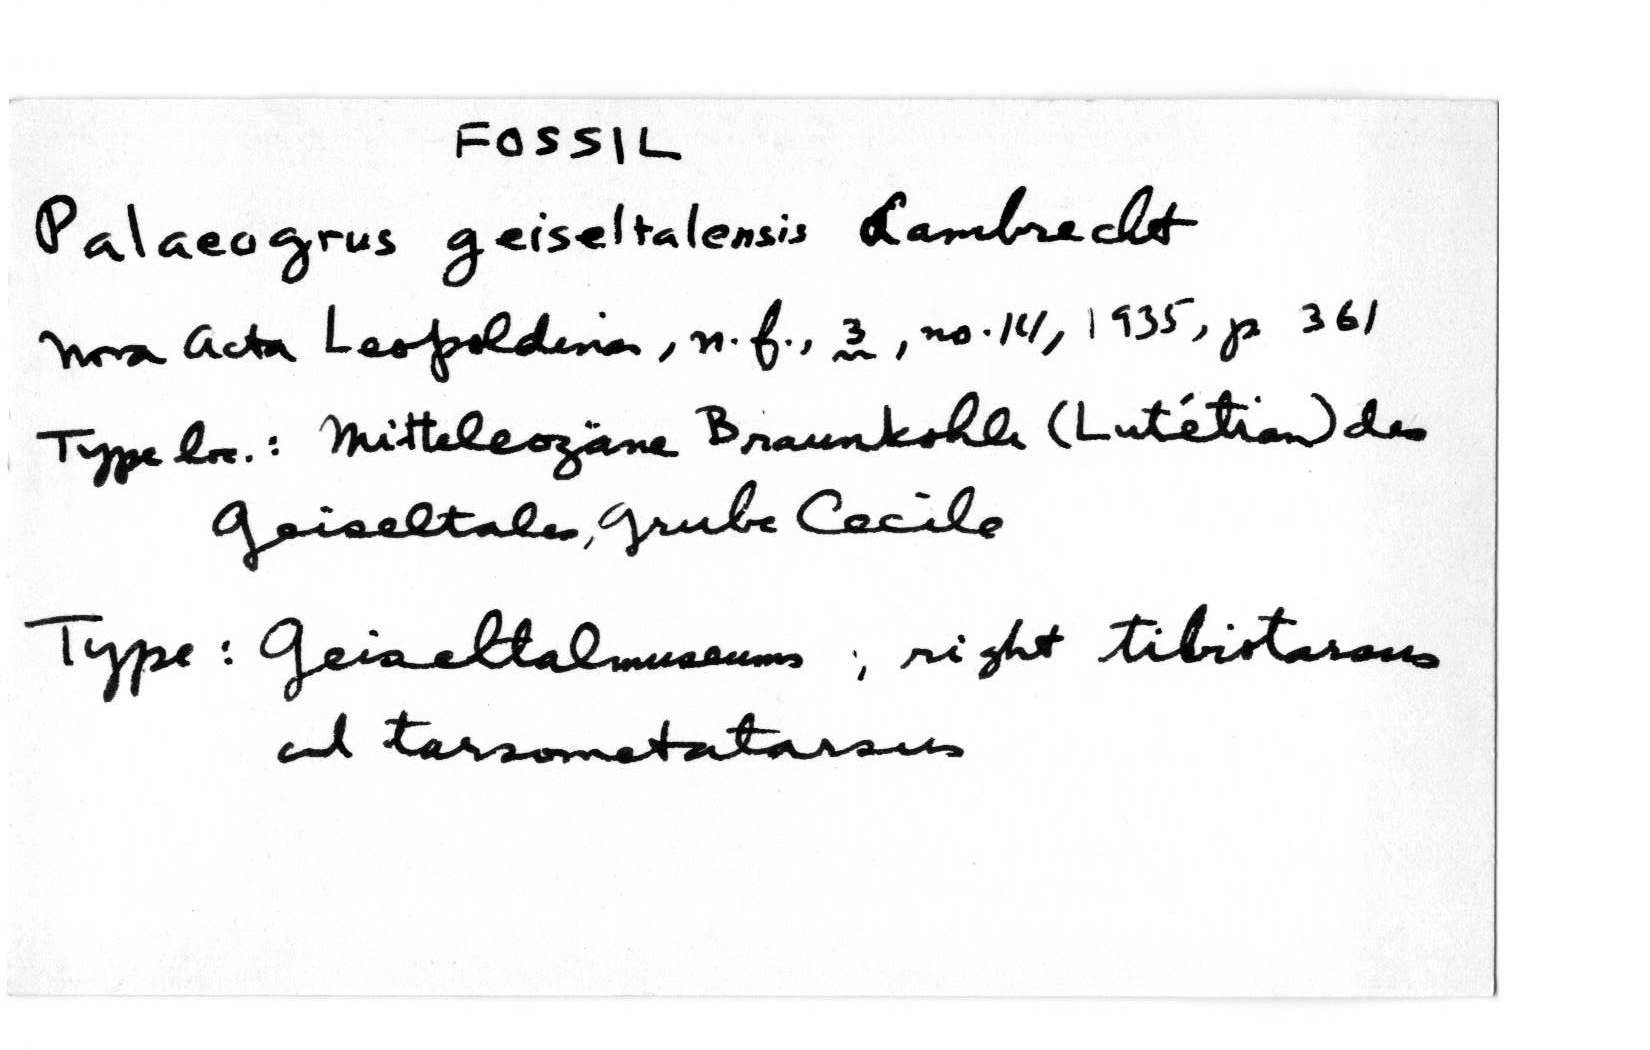 FOSSIL
Palaeogrus geiseltalensis Lambrecht
Nova Acta Leopoldina, n.f., 3, no.14, 1935, p 361
Type loc.: Mitteleozäne Braunkohle (Lutétian) des
Geiseltales, Grube Cecile
Type: Geiseltalmuseums ; right tibiotarsus
and tarsometatarsus